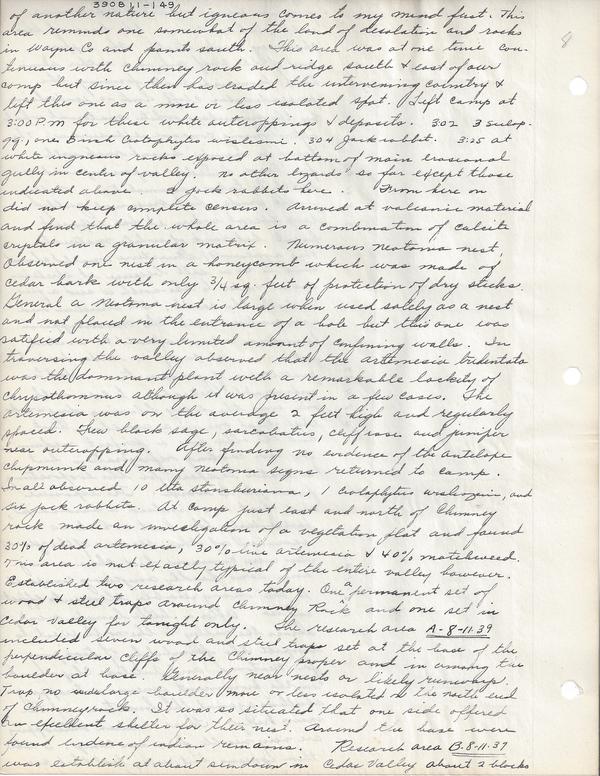 390811-149
8
of another nature but igneous comes to my mind first. This
area reminds one somewhat of the land of desolation and rocks
in Wayne Co and points south. This area was at one time con-
tinuous with chimney rock and ridge south & east of our
camp but since then has eroded the intervening country &
left this one as a more or less isolated spot. Left camp at
3:00 P.M for these white outcroppings & deposits. 302 3 Scelop.
gg., one 8 inch Crotophytes wislezeni. 304 Jack rabbit. 3:25 at
white ingneous rocks exposed at bottom of main erosional
gully in center of valley. no other lizards so far except those
indicated above. 2 jack rabbits here. From here on
did not keep complete census. Arrived at volcanic material
and find that the whole area is a combination of calcite
crystals in a granular matrix. Numerous neotoma nest,
Observed one nest in a honeycomb which was made of
cedar bark with only 3/4 sq. feet of protection of dry sticks.
General a Neotoma nest is large when used solely as a nest
and not placed in the entrance of a hole but this one was
satified with a very limited amount of confining walls. In
traversing the valley observed that the artemesia tridentata
was the dominant plant with a remarkable lackity of
chrysothamnus although it was present in a few cases. The
artemesia was on the average 2 feet high and regularly
spaced. Few black sage, sarcobatus, cliff rose and juniper
near outcropping. After finding no evidence of the antelope
chipmunk and many neotoma signs returned to camp.
In all observed 10 Uta stansburiana, 1 crotaphytus and
six jack rabbits. At camp just east and north of Chimney
rock made an investigation of a vegetation plat and found
30% of dead artemesia, 30% live artemesia & 40% matchweed.
This area is not exactly typical of the entire valley however.
Established two research areas today. One a permanent set of
wood & steel traps around Chimney Rock and one set in
Cedar Valley for tonight only. The research area A-8-11-39
included seven wood and steel traps set at the base of the
perpendicular cliffs of the Chimney proper and in among the
boulder at base. Generally near nests or likely runways.
Trap no under large boulder more or less isolated on the north end
of Chimney rock. It was so situated that one side offered
an excellent shelter for their nest. Around the base were
found evidence of indian remains. Research area B-8-11-39
was establish at about sundown in Cedar Valley about 2 blocks